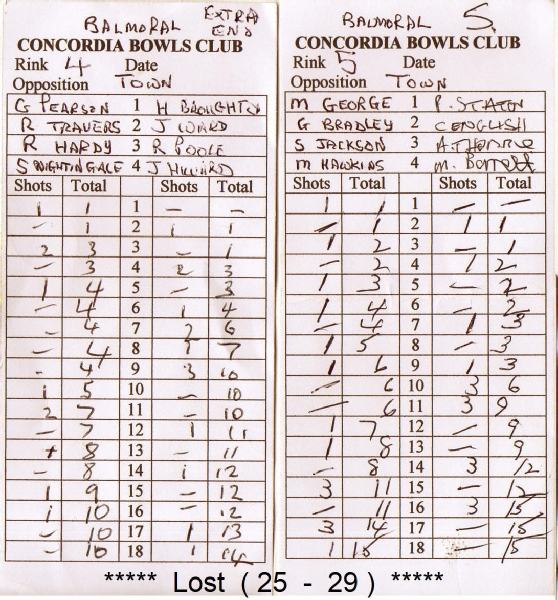 BALMORAL EXTRA END
CONCORDIA BOWLS CLUB
Rink 4 Date
Opposition TOWN
G PEARSON 1 H BROUGHTON
R TRAVERS 2 J WARD
R HARDY 3 R POOLE
S NIGHTINGALE 4 J HILLIARD
Shots Total Shots Total
1 1 1 — —
— 1 2 1 1
2 3 3 — 1
— 3 4 2 3
1 4 5 — 3
— 4 6 1 4
— 4 7 2 6
— 4 8 1 7
— 4 9 3 10
1 5 10 — 10
2 7 11 — 10
— 7 12 1 11
1 8 13 — 11
— 8 14 1 12
1 9 15 — 12
1 10 16 — 12
— 10 17 1 13
— 10 18 1 14
BALMORAL 5.
CONCORDIA BOWLS CLUB
Rink 5 Date
Opposition TOWN
M GEORGE 1 P. STATON
G BRADLEY 2 C ENGLISH
S JACKSON 3
M HAWKINS 4 M.
Shots Total Shots Total
1 1 1 — —
— 1 2 1 1
1 2 3 — 1
— 2 4 1 2
1 3 5 — 2
1 4 6 — 2
— 4 7 1 3
1 5 8 — 3
1 6 9 1 3
— 6 10 3 6
— 6 11 3 9
1 7 12 — 9
1 8 13 — 9
— 8 14 3 12
3 11 15 — 12
— 11 16 3 15
3 14 17 — 15
1 15 18 — 15
***** Lost ( 25 - 29 ) *****